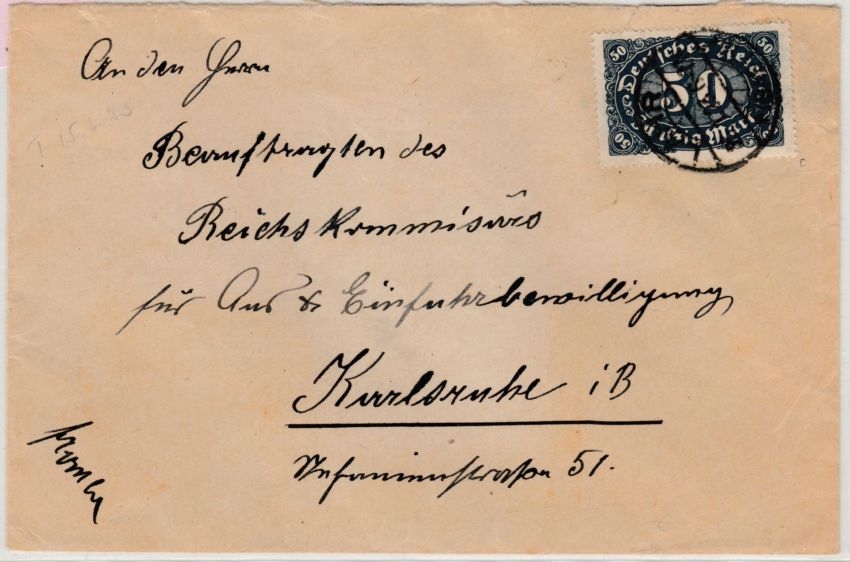 An den Herrn
Beauftragten des
Reichskommisärs
für Aus & Einfuhrbewilligung
Karlsruhe iB
Stefanienstraße 51.
50 Deutsches Reich 50
50
50 50